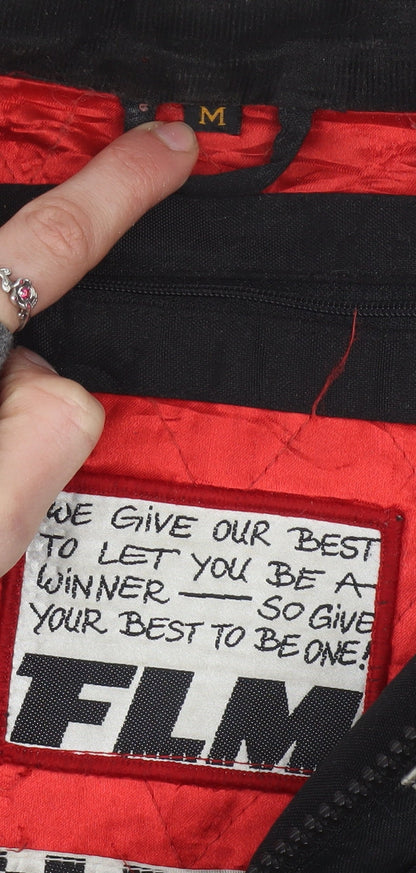 M
WE GIVE OUR BEST
TO LET YOU BE A
WINNER — SO GIVE
YOUR BEST TO BE ONE!
FLM